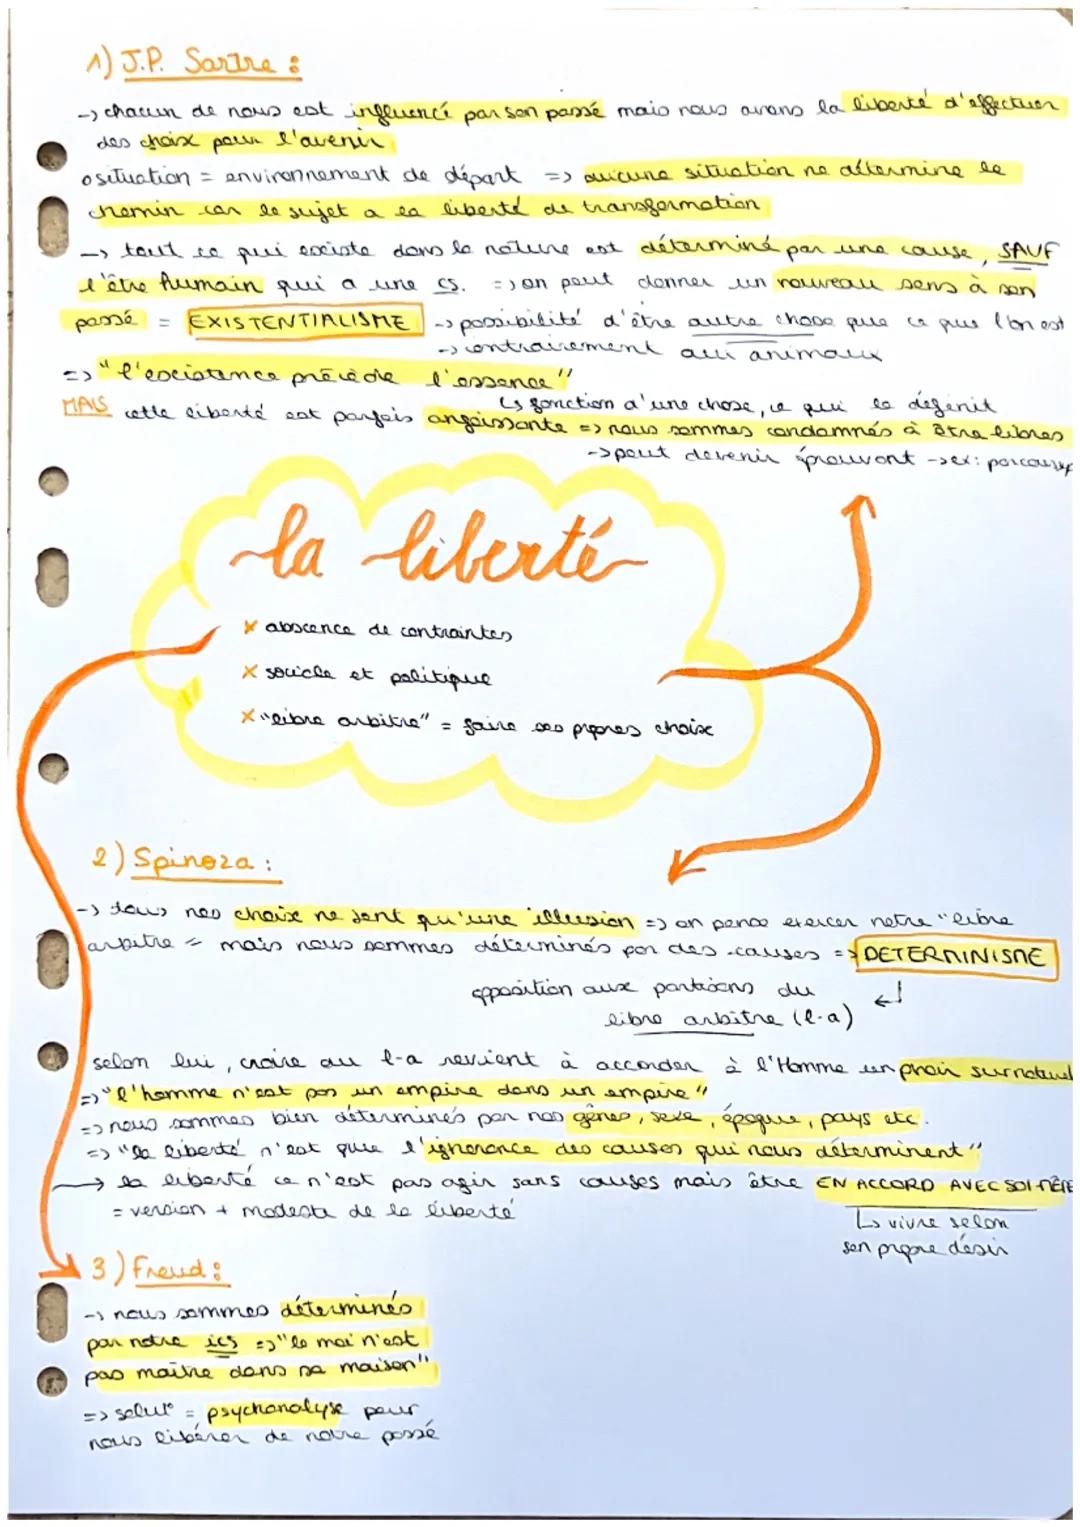 1) J.P. Sartre :
-> chacun de nous est influencé par son passé mais nous avons la liberté d'effectuer
des choix pour l'avenir
o situation = environnement de départ => aucune situation ne détermine le
chemin car le sujet a la liberté de transformation
-> tout ce qui existe dans la nature est déterminé par une cause, SAUF
l'être humain qui a une cs. => on peut donner un nouveau sens à son
passé = EXISTENTIALISME -> possibilité d'être autre chose que ce que l'on est
-> contrairement aux animaux
=> "l'existence précède l'essence"
↳ fonction d'une chose, ce qui le définit
MAIS cette liberté est parfois angoissante => nous sommes condamnés à être libres
-> peut devenir éprouvant -> ex: parcoursup
la liberté
x abscence de contraintes
x sociale et politique
x "libre arbitre" = faire ses propres choix
2) Spinoza :
-> tous nos choix ne sont qu'une illusion => on pense exercer notre "libre
arbitre" mais nous sommes déterminés par des causes => DETERMINISME
opposition aux partisans du
libre arbitre (l-a)
selon lui, croire au l-a revient à accorder à l'Homme un pvoir surnaturel
=> "l'homme n'est pas un empire dans un empire"
=> nous sommes bien déterminés par nos gênes, sexe, époque, pays etc.
=> "la liberté n'est que l'ignorance des causes qui nous déterminent"
-> la liberté ce n'est pas agir sans causes mais être EN ACCORD AVEC SOI-MÊME
= version + modeste de la liberté
↳ vivre selon
son propre désir
3) Freud :
-> nous sommes déterminés
par notre ics => "le moi n'est
pas maître dans sa maison"
=> solut° = psychanalyse pour
nous libérer de notre passé